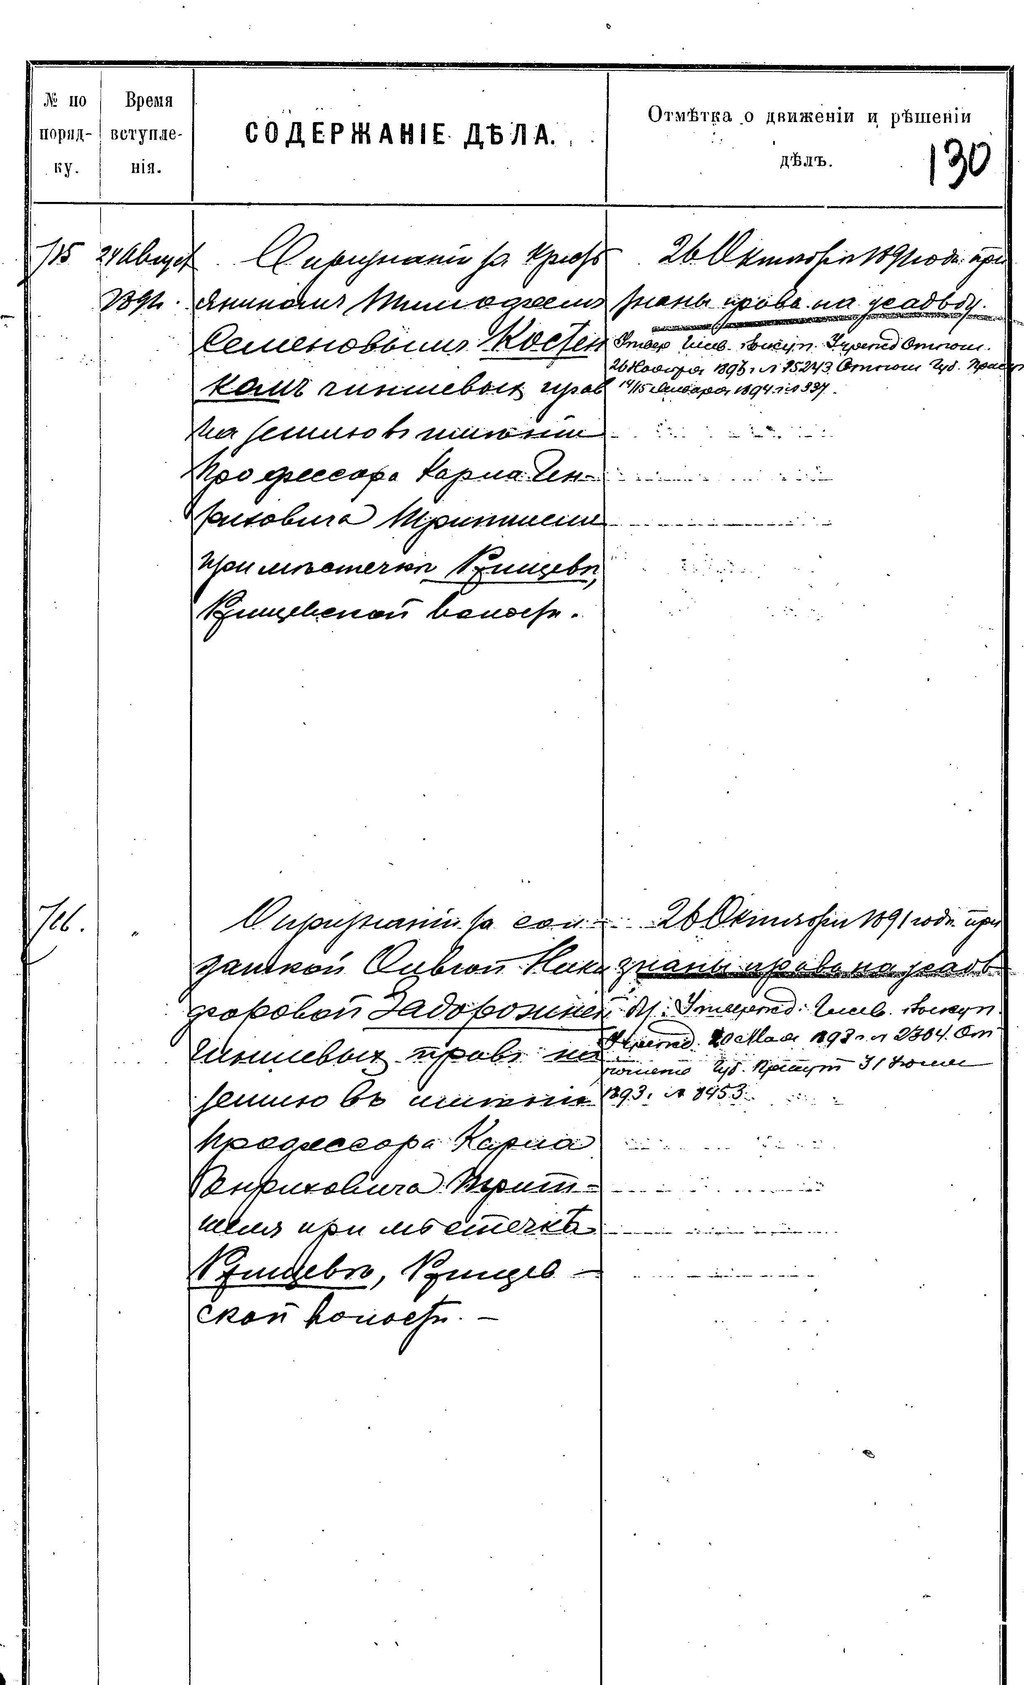 № по поряд-ку.
Время вступле-нія.
СОДЕРЖАНІЕ ДѢЛА.
Отмѣтка о движеніи и рѣшеніи
дѣлъ.
130
715
24 Август
1891.
О признаніи за крест
яниномъ Тимофеемъ
Семеновымъ Костен
комъ чиншевыхъ прав
на землю въ имѣніи
профессора Карла Ген-
риховича
при мѣстечкѣ Ржищевѣ,
Ржищевской волости.
26 Октября 1891 года при
знаны права на усадьбу.
Утвер Выкуп. Учрежд Отнош.
26 Ноября 1893 г № 15243 Отнош Губ. Присут
14/15 Января 1894 г. № 337.
716.
"
О признаніи за сол-
даткой Ники
форовой Задорожней
чиншевыхъ правъ на
землю въ имѣніи
профессора Карла
Генриховича Трит-
шеля при мѣстечкѣ
Ржищевѣ, Ржищев-
ской волости. -
26 Октября 1891 года при
знаны права на усадь
бу. Утвержд. Выкуп.
Учрежд. 20 Мая 1893 г № 2704 От
ношеніе Губ. Присут 31 Іюля
1893 г № 8953.